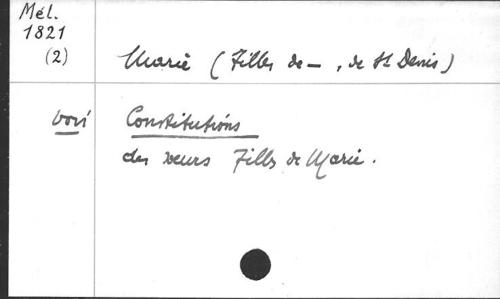 Mél.
1821
(2)
Marie (Filles de — , de St Denis)
voir Constitutions
des soeurs Filles de Marie.